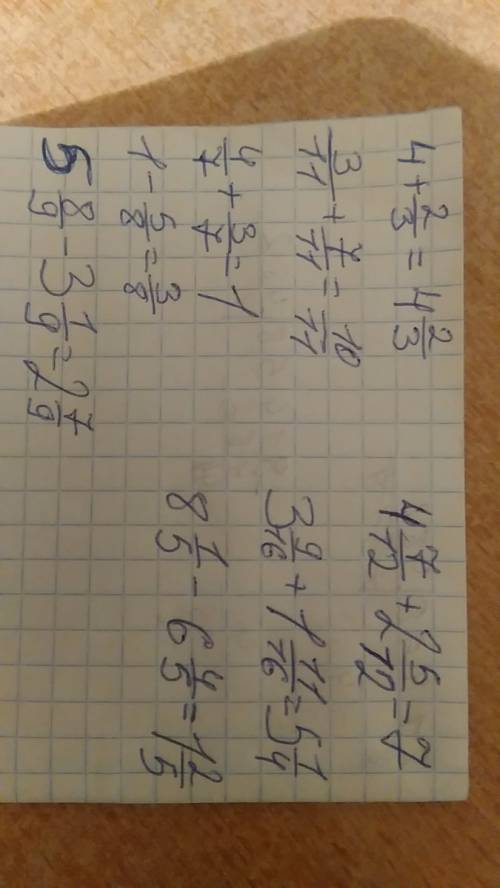 4 + 2/3 = 4 2/3
3/11 + 7/11 = 10/11
4/7 + 3/7 = 1
1 - 5/8 = 3/8
5 8/9 - 3 1/9 = 2 7/9
4 7/12 + 2 5/12 = 7
3 9/16 + 1 11/16 = 5 1/4
8 1/5 - 6 4/5 = 1 2/5